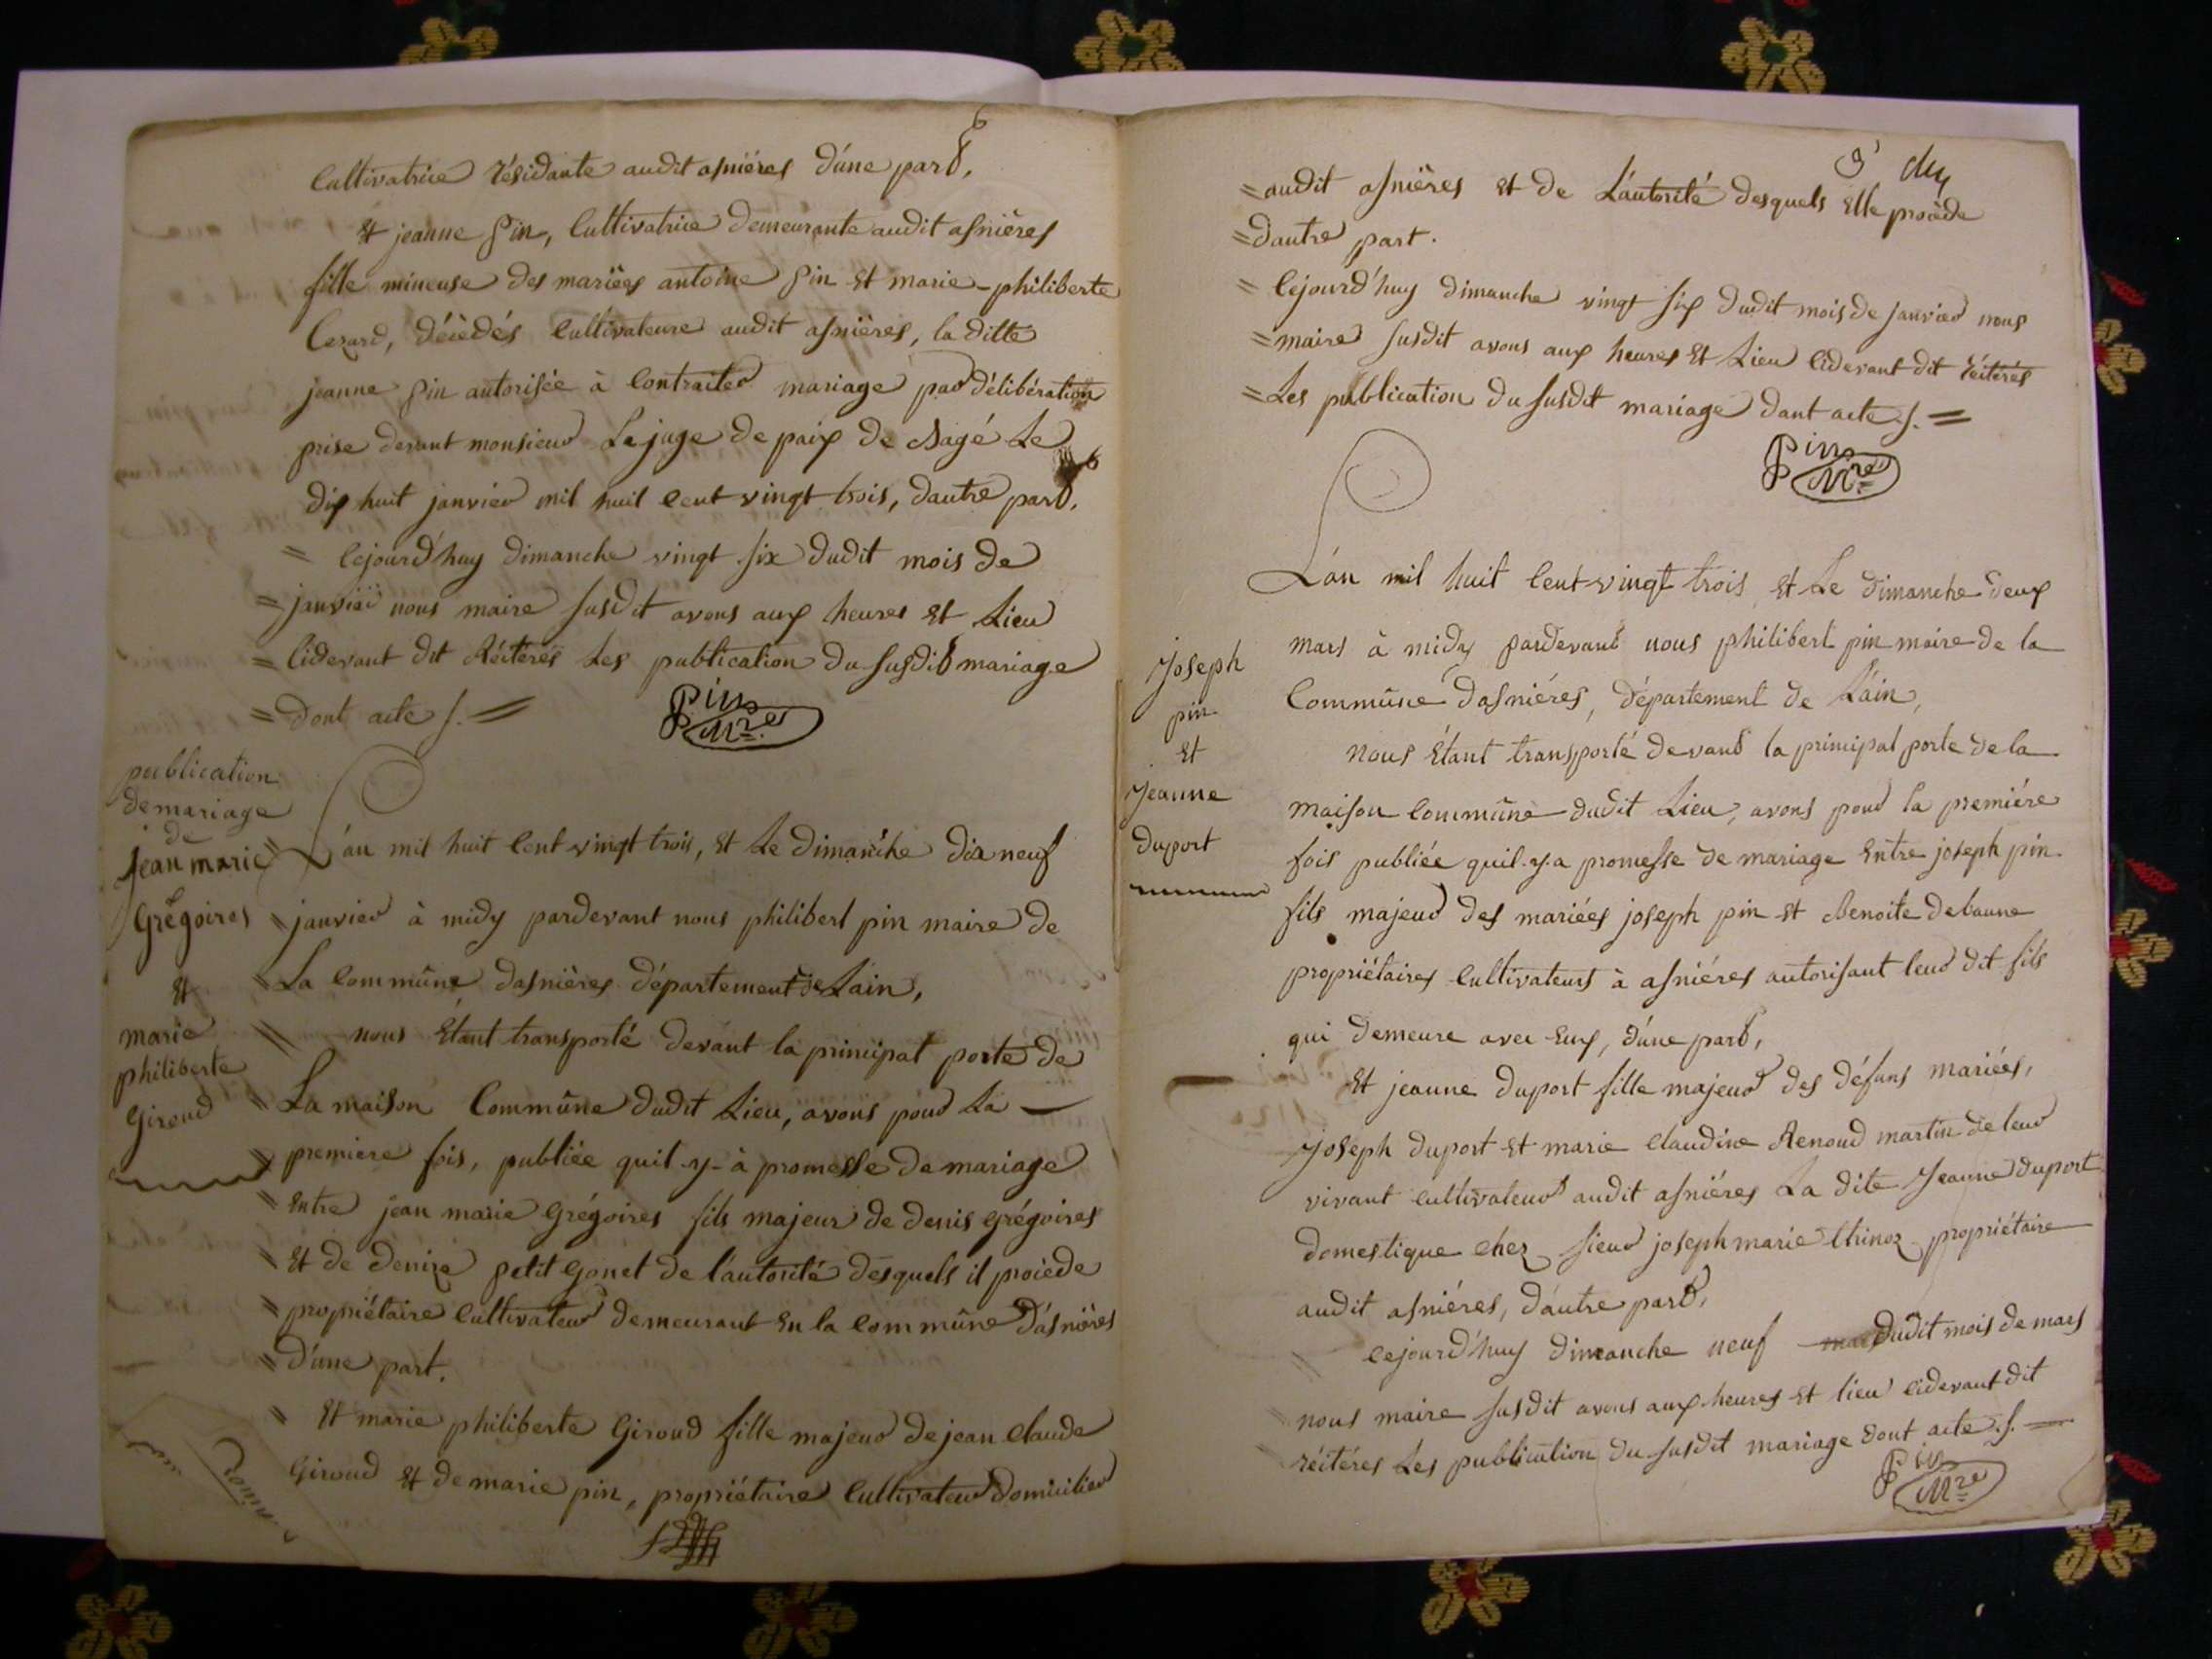 cultivatrice résidante audit asnières d'une part,
Et jeanne pin, cultivatrice demeurante audit asnières
fille mineuse des mariées antoine pin Et marie-philiberte
décèdés cultivateure audit asnières, la ditte
jeanne pin autorisée à contraiter mariage par délibération
prise devant monsieur Le juge de paix de Bagé Le
dix huit janvier mil huit cent vingt trois, dautre part.
= cejourd'huy dimanche vingt six dudit mois de
= janvier nous maire susdit avons aux heures Et Lieu
= cidevant dit Réiterés Les publication du susdit mariage
= dont acte ſ. =
Pin
Mre
publication
de mariage
de
Jean marie
Grégoires
Et
marie
philiberte
Giroud
L'an mil huit cent vingt trois, Et Le dimanche dix neuf
janvier à midy pardevant nous philibert pin maire de
La commûne dasnières département de Lain,
nous Etant transporté devant la principal porte de
La maison Commûne dudit Lieu, avons pour La —
premiere fois, publiée quil-y-à promesse de mariage
Entre jean marie Grégoires fils majeur de denis grégoires
Et de denize petit gonet de l'autorité desquels il procède
propriétaire cultivateur demeurant En la commûne d'asnières
d'une part.
Et marie philiberte Giroud fille majeur de jean claude
Giroud Et de marie pin, propriétaire cultivateur domicilier
= audit asnières Et de L'autorité desquels Elle procède
= dautre part.
= Cejourd'huy dimanche vingt six dudit mois de janvier nous
= maire susdit avons aux heures Et Lieu cidevant dit réitérés
= Les publication du susdit mariage dant acte ſ. =
Pin
Mre
Joseph
pin
Et
Jeanne
duport
L'an mil huit cent vingt trois Et Le dimanche deux
mars à midy pardevant nous philibert pin maire de la
Commûne dasniéres, département de L'ain,
nous Etant transporté devant la principal porte de la
maison commûne dudit Lieu, avons pour la premiére
fois publiée quil-y-a promesse de mariage Entre joseph pin
fils majeur des mariées joseph pin Et Benoite debaune
propriétaires cultivateurs à asniéres autorisant leur dit fils
qui demeure avec Eux, d'une part,
Et jeanne duport fille majeur des défuns mariées,
joseph duport Et marie claudine Renoud martin de leur
vivant cultivateur audit asniéres La dite Jeanne duport
domestique chez sieur joseph marie propriétaire
audit asniéres, d'autre part,
cejourd'huy dimanche neuf dudit mois de mars
nous maire susdit avons aux heures Et lieu cidevant dit
réitéres Les publication du susdit mariage dont acte. ſ. —
Pin
Mre